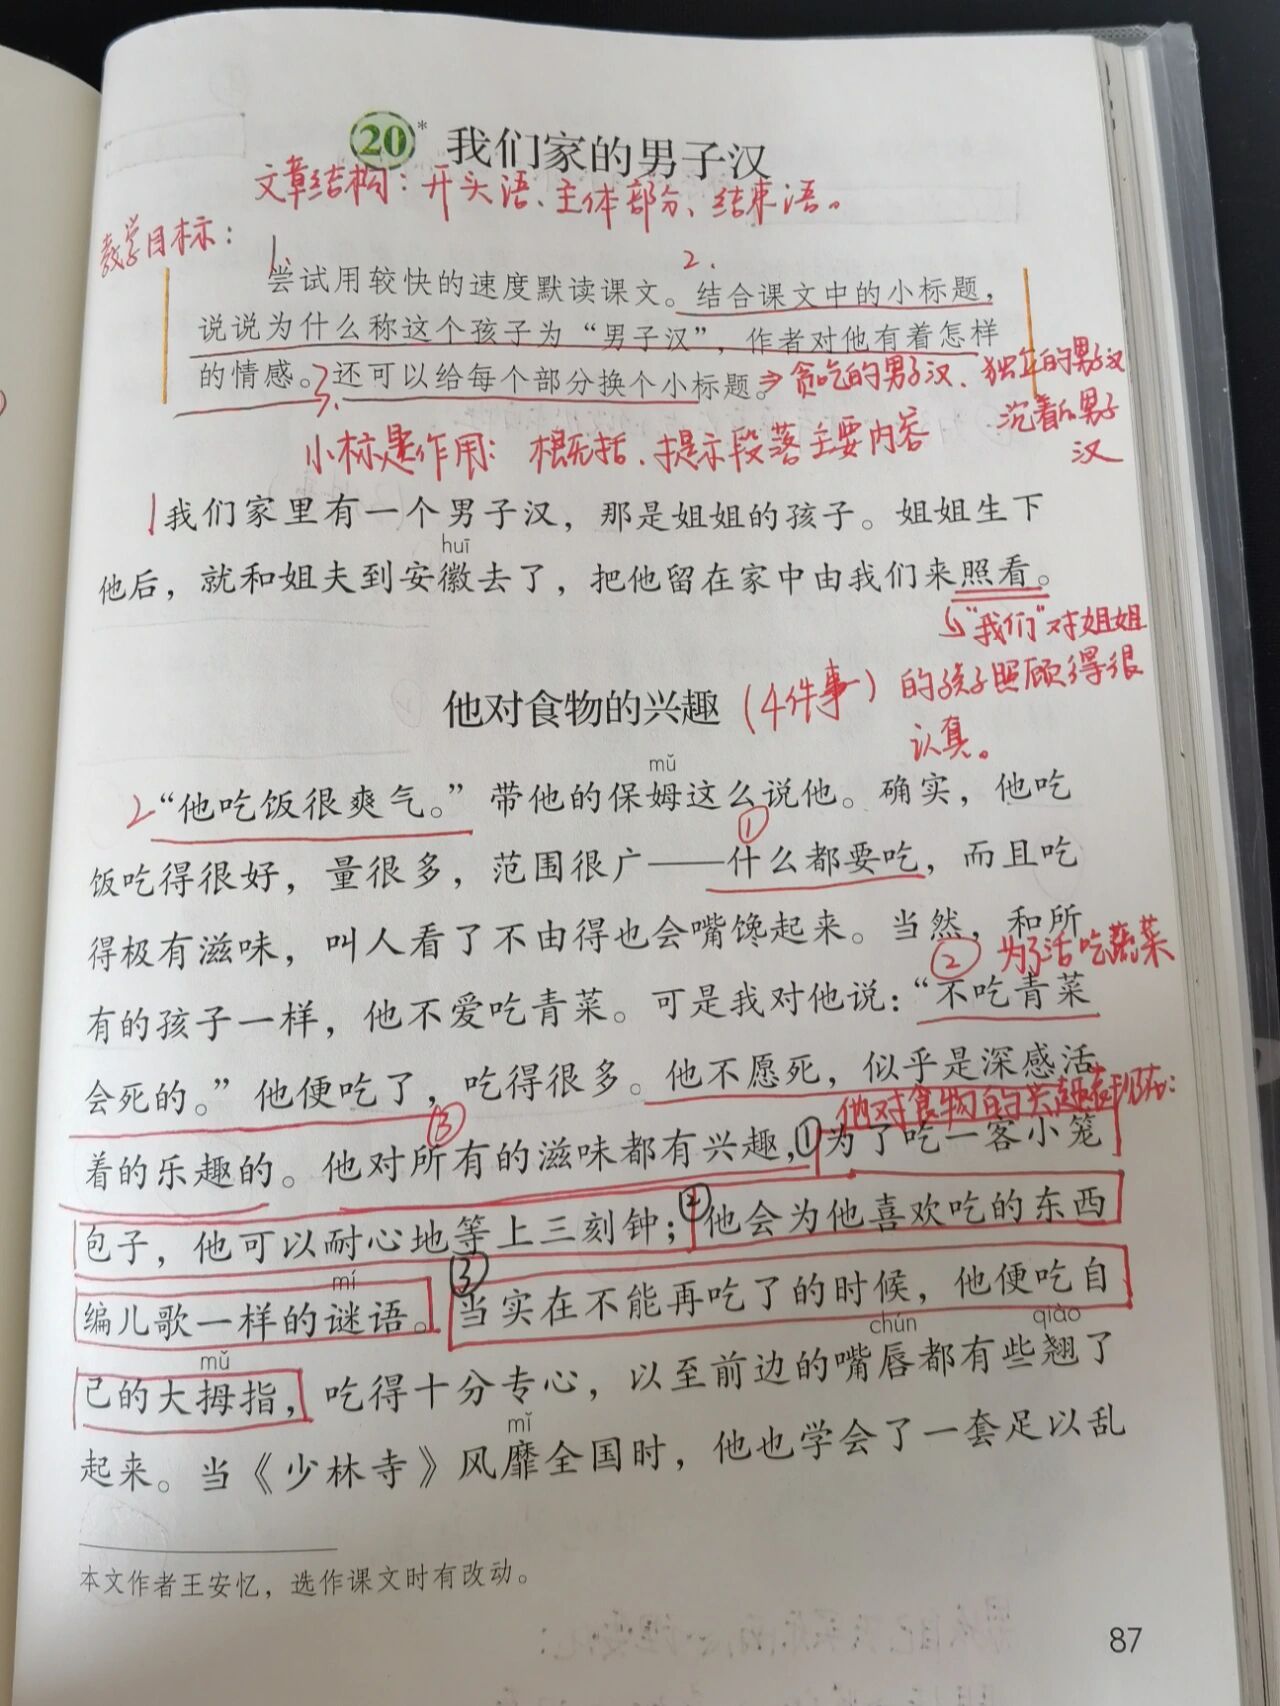 20* 我们家的男子汉
文章结构：开头语、主体部分、结束语。
教学目标：
1.
2.
尝试用较快的速度默读课文。结合课文中的小标题，
说说为什么称这个孩子为“男子汉”，作者对他有着怎样
的情感。3.还可以给每个部分换个小标题。⇒贪吃的男子汉、独立的男子汉
沉着的男子
汉
小标题作用：概括、提示段落主要内容
1我们家里有一个男子汉，那是姐姐的孩子。姐姐生下
huī
他后，就和姐夫到安徽去了，把他留在家中由我们来照看。
↳“我们”对姐姐
的孩子照顾得很
认真。
他对食物的兴趣（4件事）
mǔ
2“他吃饭很爽气。”带他的保姆这么说他。确实，他吃
①
饭吃得很好，量很多，范围很广——什么都要吃，而且吃
得极有滋味，叫人看了不由得也会嘴馋起来。当然，和所
② 为了活吃蔬菜
有的孩子一样，他不爱吃青菜。可是我对他说：“不吃青菜
会死的。”他便吃了，吃得很多。他不愿死，似乎是深感活
③ 他对食物的兴趣表现在：
着的乐趣的。他对所有的滋味都有兴趣，①为了吃一客小笼
包子，他可以耐心地等上三刻钟；②他会为他喜欢吃的东西
mí
编儿歌一样的谜语。③当实在不能再吃了的时候，他便吃自
mǔ chún qiào
己的大拇指，吃得十分专心，以至前边的嘴唇都有些翘了
mǐ
起来。当《少林寺》风靡全国时，他也学会了一套足以乱
本文作者王安忆，选作课文时有改动。
87